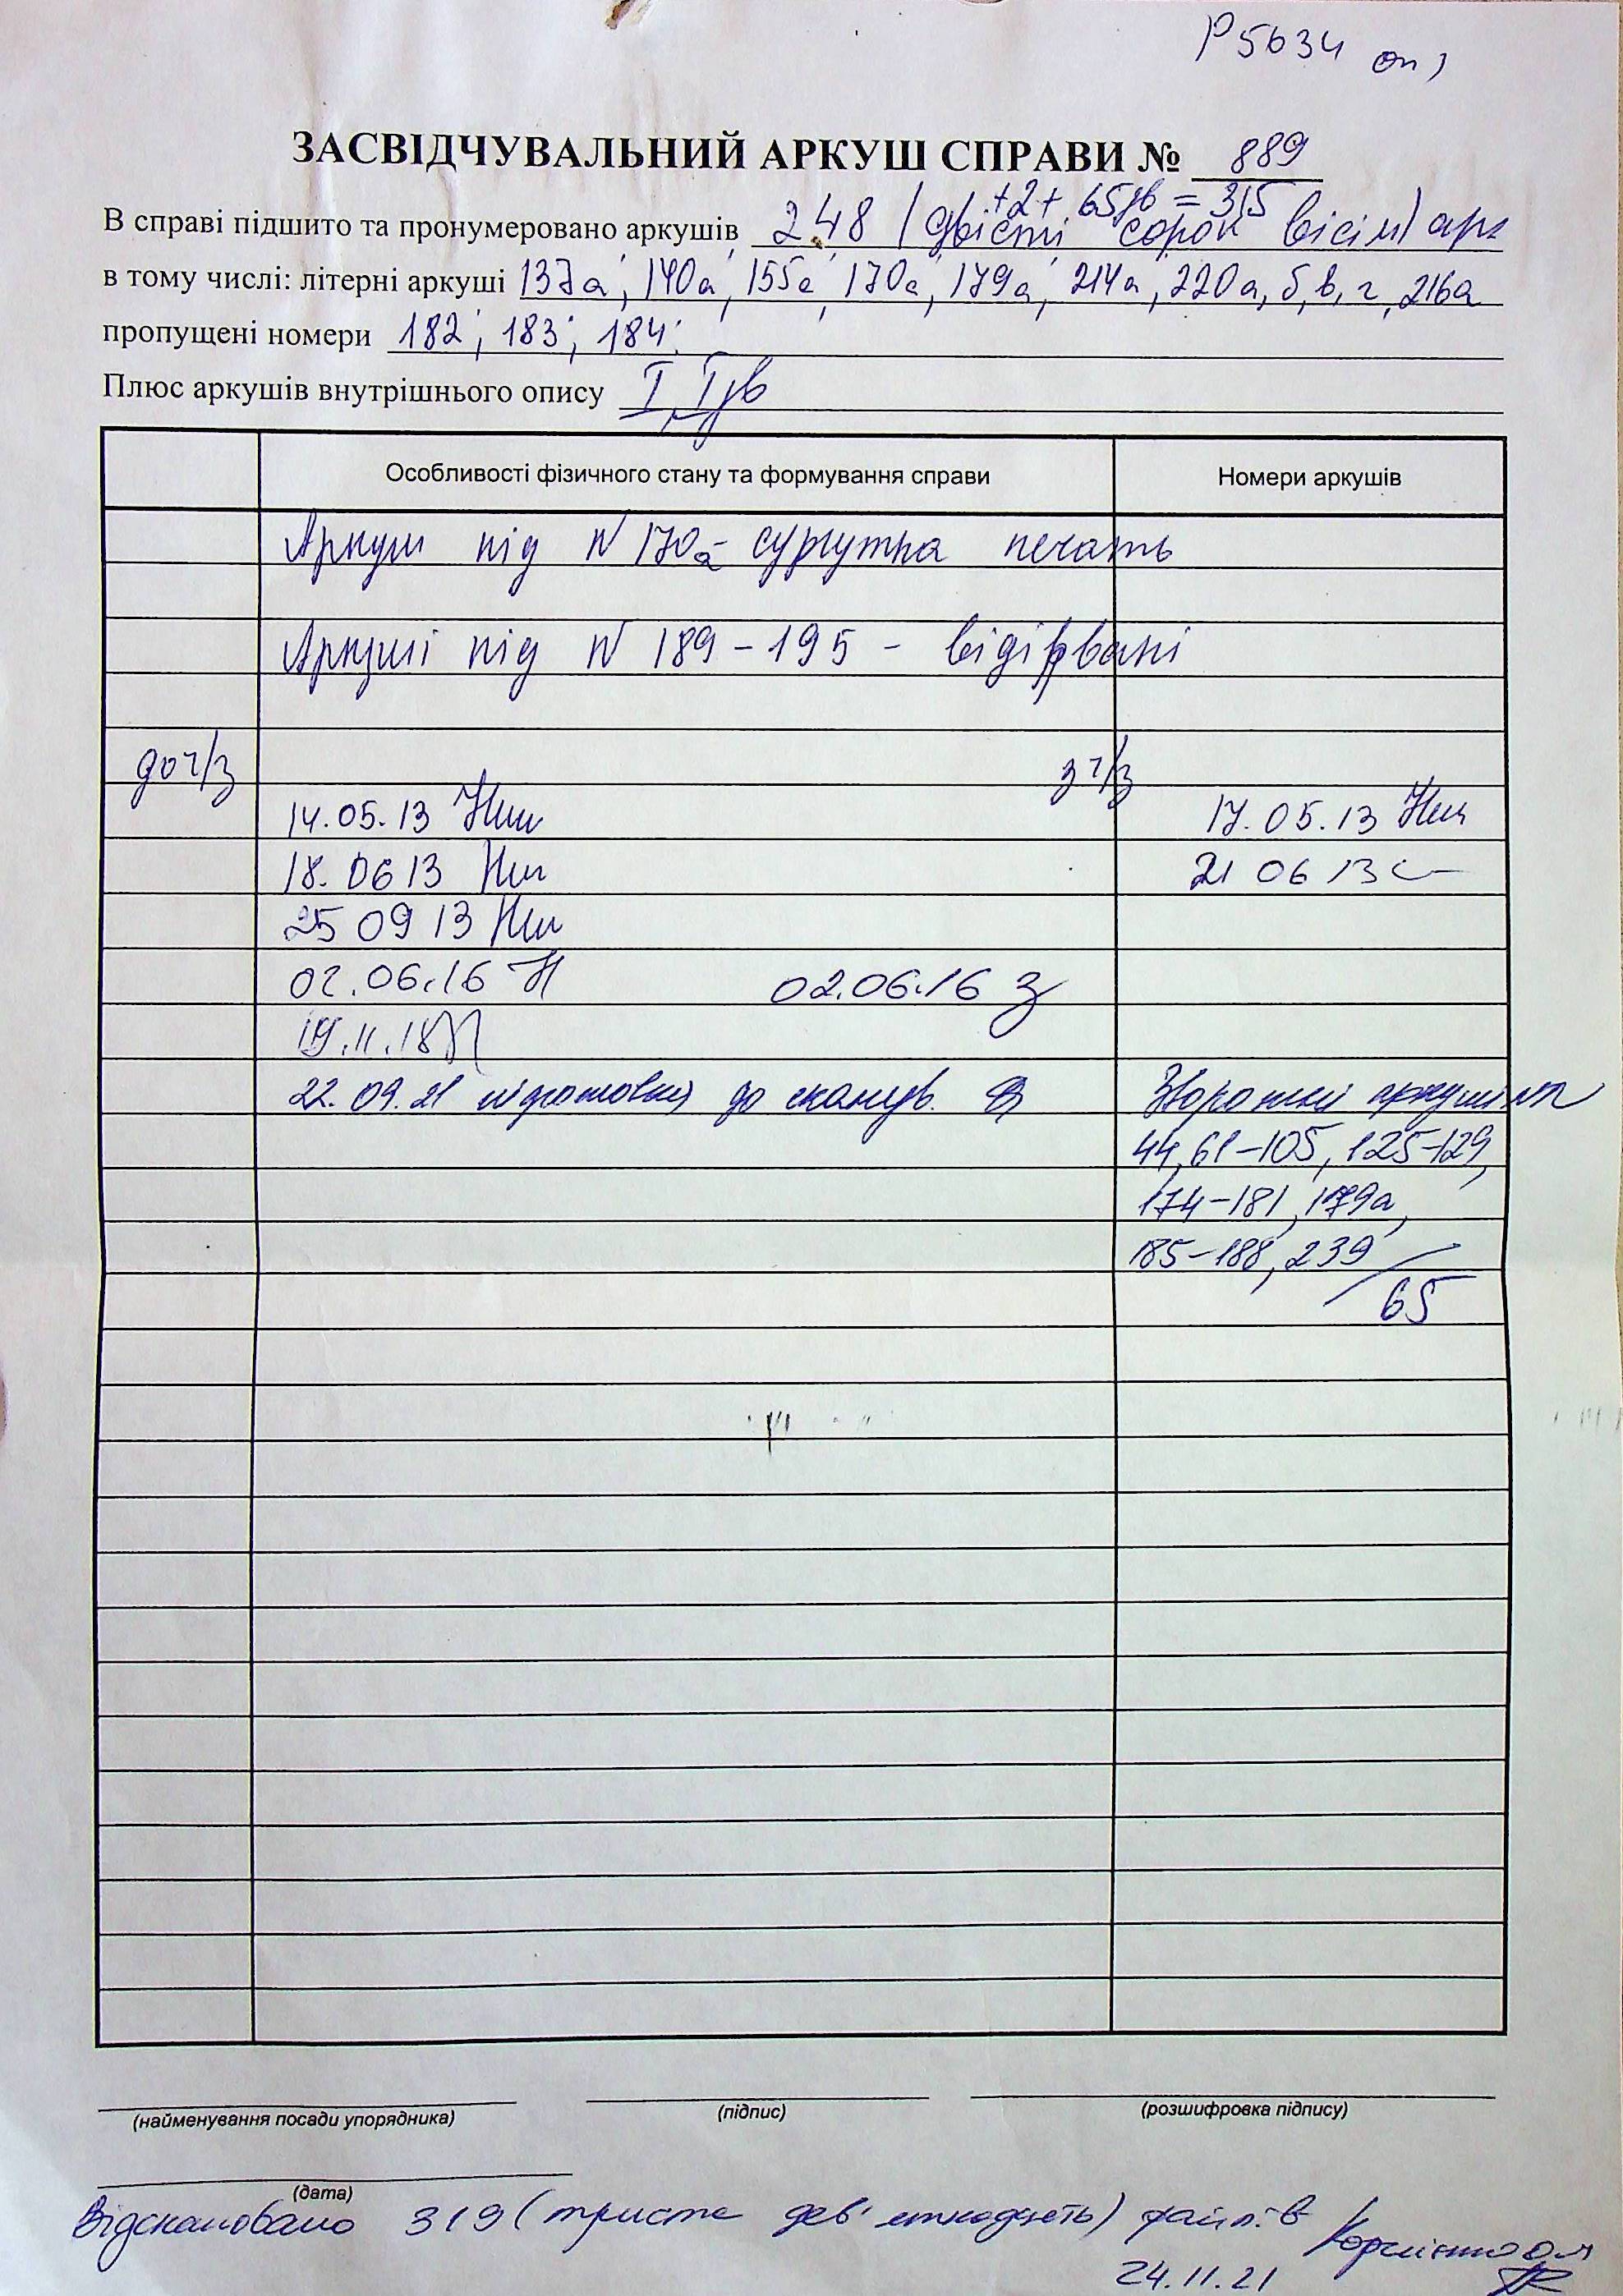 Р5634 оп 1
ЗАСВІДЧУВАЛЬНИЙ АРКУШ СПРАВИ № 889
+2+ 65зв = 315
В справі підшито та пронумеровано аркушів 248 (двісті сорок вісім) арк
в тому числі: літерні аркуші 137а; 140а; 155а; 170а; 179а; 214а, 220а, б, в, г, 216а
пропущені номери 182; 183; 184;
Плюс аркушів внутрішнього опису І, Ізв
Особливості фізичного стану та формування справи Номери аркушів
Аркуш під N 170а - сургутна печать
Аркуші під N 189-195 - відірвані
до ч/з з ч/з
14.05.13 17.05.13
18.06 13 21 06 13
25 09 13
02.06.16 02.06.16
19.11.18
22.09.21 до сканув. Зворотки
44, 61-105, 125-129,
174-181, 179а,
185-188, 239
65
(найменування посади упорядника) (підпис) (розшифровка підпису)
(дата)
Відскановано 319 (триста дев'ятнадцять) файлів
24.11.21